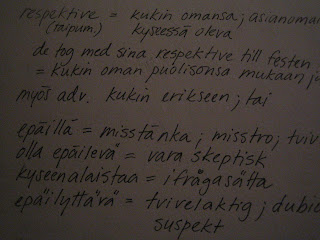 respektive = kukin omansa; asianoman
(taipum.) kyseessä oleva
de tog med sina respektive till festen
= kukin oman puolisonsa mukaan ju
myös adv. kukin erikseen; tai
epäillä = misstänka; misstro; tviv
olla epäilevä = vara skeptisk
kyseenalaistaa = ifrågasätta
epäilyttävä = tvivelaktig; dubiö
suspekt